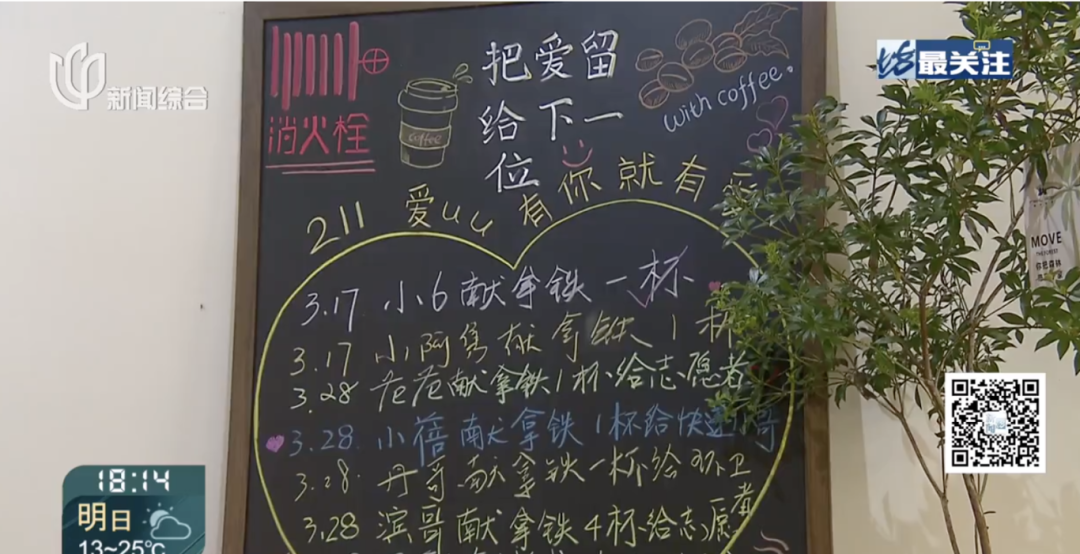 新闻综合
最关注
消火栓
coffee
把爱留
给下一
位
with coffee.
211 爱uu 有你就有爱
3.17 小6献拿铁一杯
3.17 小阿 献拿铁1杯
3.28 献拿铁1杯给志愿者
3.28. 小蓓献拿铁1杯给快递小哥
3.28. 丹哥献拿铁一杯给环卫
3.28 滨哥献拿铁4杯给志愿者
MOVE
18:14
明日
13~25℃